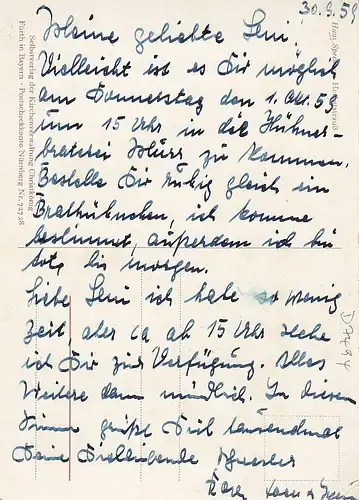 30.9.59
Meine geliebte Leni
Vielleicht ist es Dir möglich
am Donnerstag den 1. Okt. 59
um 15 Uhr in die Hühner-
braterei zu kommen.
Bestelle Dir ruhig gleich ein
Brathühnchen, ich komme
bestimmt, außerdem ich bin
tot, bis morgen.
Liebe Leni ich habe so wenig
Zeit, aber ca ab 15 Uhr stehe
ich Dir zur Verfügung. Alles
Weitere dann mündlich. In diesem
Sinne grüßt Dich tausendmal
Deine
Selbstverlag der Kirchenverwaltung Christkönig
Fürth in Bayern · Postscheckkonto Nürnberg Nr. 72728